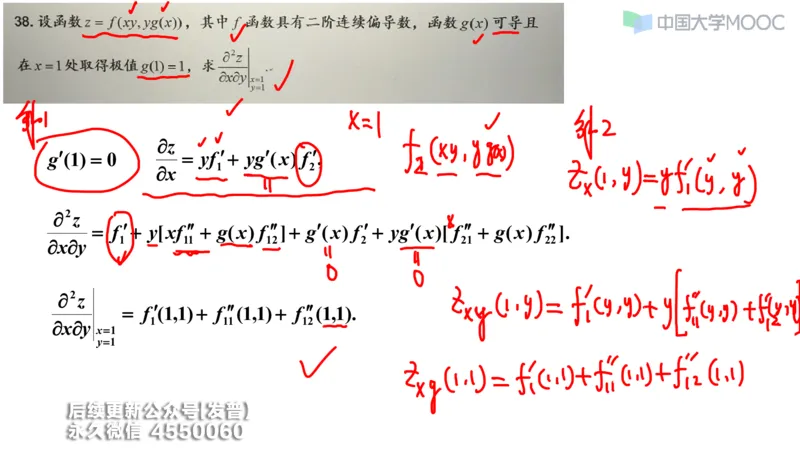 38. 设函数 z = f(xy, yg(x)), 其中 f 函数具有二阶连续偏导数, 函数 g(x) 可导且
中国大学MOOC
在 x = 1 处取得极值 g(1) = 1, 求 ∂²z/∂x∂y |x=1 y=1
x=1
f₂(xy, yg(x))
g′(1) = 0 ∂z/∂x = yf₁′ + yg′(x)f₂′.
Zx(1,y) = yf₁′(y, y)
∂²z/∂x∂y = f₁′ + y[xf₁₁″ + g(x)f₁₂″] + g′(x)f₂′ + yg′(x)[xf₂₁″ + g(x)f₂₂″].
0 0
∂²z/∂x∂y |x=1 y=1 = f₁′(1,1) + f₁₁″(1,1) + f₁₂″(1,1).
Zxy(1,y) = f₁′(y,y) + y[f₁₁″(y,y) + f₁₂″(y,y)]
Zxy(1,1) = f₁′(1,1) + f₁₁″(1,1) + f₁₂″(1,1)
后续更新公众号{发普}
永久微信 4550060